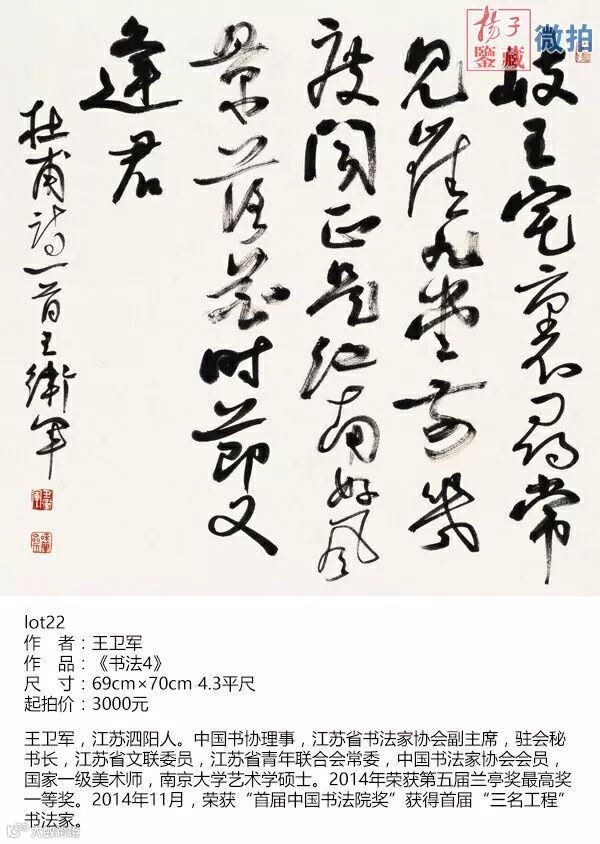 揚子
鑒藏
微拍
岐王宅裏寻常
见崔九堂前幾
度闻正是江南好风
景落花时節又
逢君
杜甫诗一首王衛军
lot22
作 者：王卫军
作 品：《书法4》
尺 寸：69cm×70cm 4.3平尺
起拍价：3000元
王卫军，江苏泗阳人。中国书协理事，江苏省书法家协会副主席，驻会秘
书长，江苏省文联委员，江苏省青年联合会常委，中国书法家协会会员，
国家一级美术师，南京大学艺术学硕士。2014年荣获第五届兰亭奖最高奖
一等奖。2014年11月，荣获“首届中国书法院奖”获得首届“三名工程”
书法家。